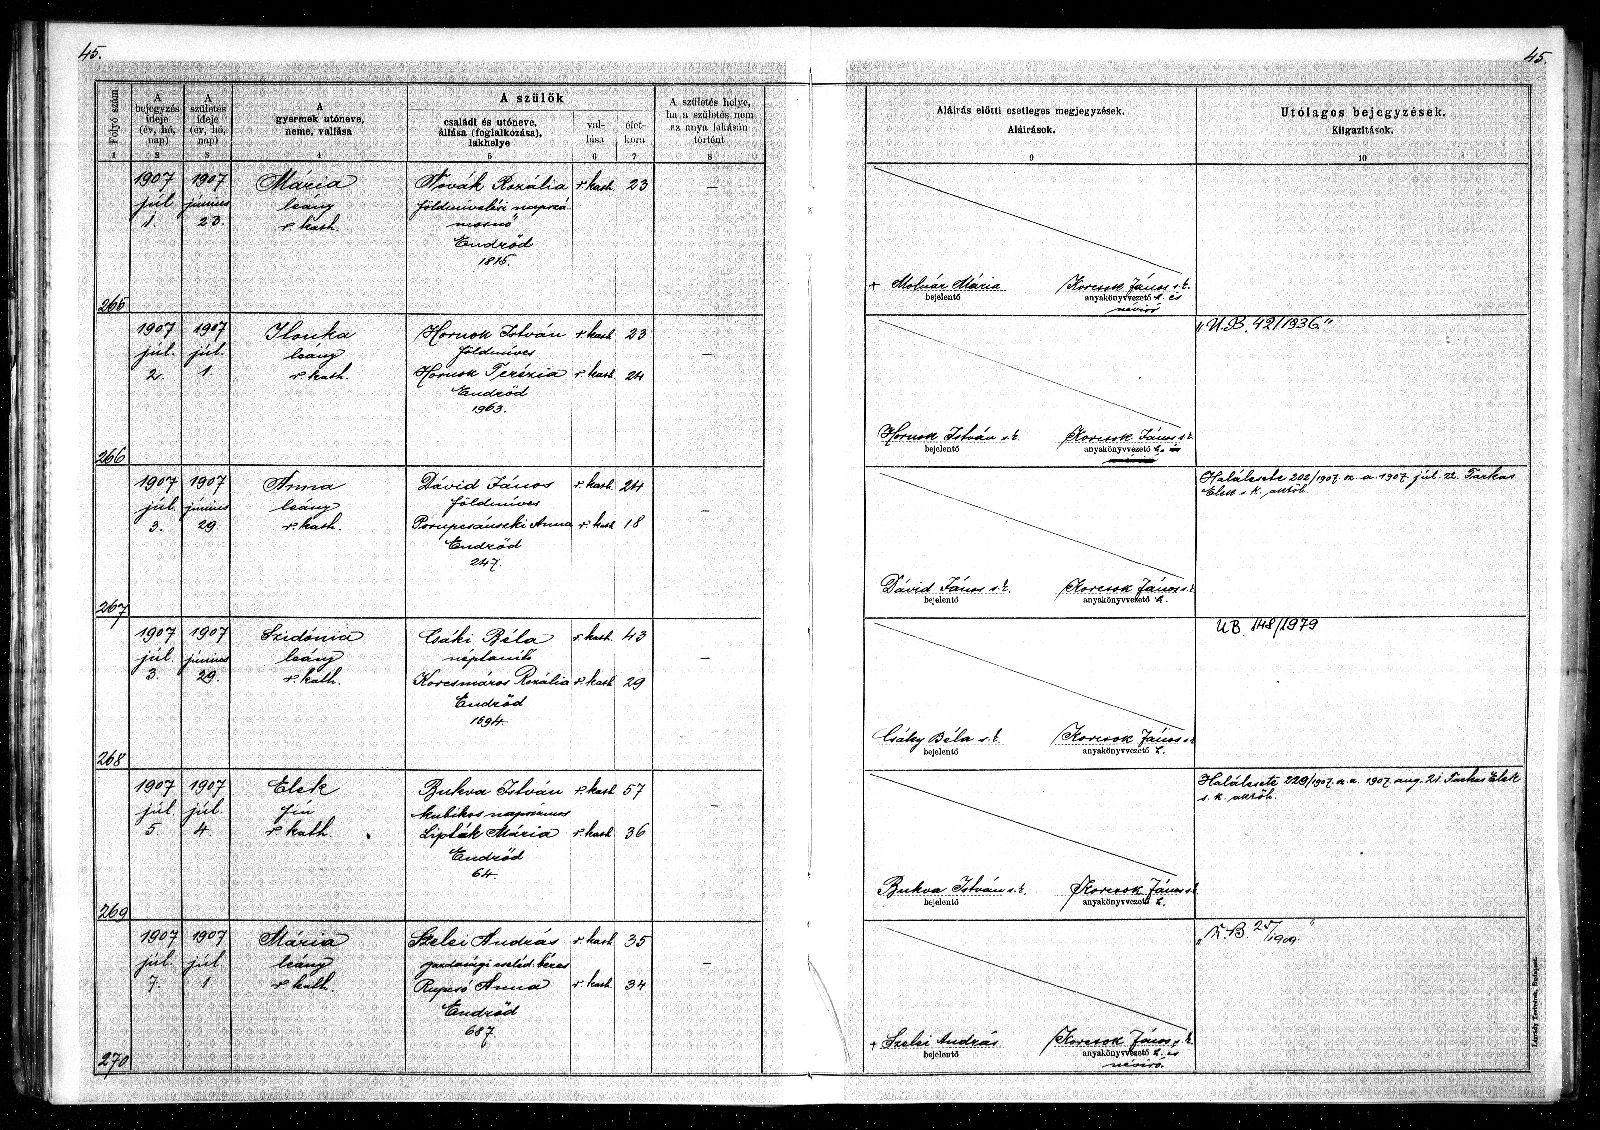 45.
45.
Folyó szám
A bejegyzés ideje (év, hó, nap)
A születés ideje (év, hó, nap)
A gyermek utóneve, neme, vallása
A szülők
családi és utóneve, állása (foglalkozása), lakhelye
vallása
életkora
A születés helye, ha a születés nem az anya lakásán történt
Aláírás előtti esetleges megjegyzések.
Aláírások.
Utólagos bejegyzések.
Kiigazítások.
1 2 3 4 5 6 7 8 9 10
265
1907 júl. 1.
1907 június 23.
Mária
leány
r. kath.
Novák Rozália r. kath. 23 —
földmívelési napszá-
mosnő
Endrőd
1815.
+ Molnár Mária
bejelentő
Korcsok János s.k.
anyakönyvvezető h. és
névíró
266
1907 júl. 2.
1907 júl. 1.
Ilonka
leány
r. kath.
Hornok István r. kath. 23 —
földmíves
Hornok Terézia r. kath. 24
Endrőd
1963.
Hornok István s.k.
bejelentő
Korcsok János s.k.
anyakönyvvezető h.
„U.B. 42/1936."
267
1907 júl. 3.
1907 június 29
Anna
leány
r. kath.
Dávid János r. kath. 24 —
földmíves
Anna r. kath. 18
Endrőd
247.
Dávid János s.k.
bejelentő
Korcsok János s.k.
anyakönyvvezető h.
Halálesete 202/1907. a. 1907. júl. Farkas
Elek s. k.
268
1907 júl. 3.
1907 június 29.
Szidónia
leány
r. kath.
Csáki Béla r. kath. 43 —
néptanító
Korcsmáros Rozália r. kath. 29
Endrőd
1694.
Csáky Béla s.k.
bejelentő
Korcsok János s.k.
anyakönyvvezető h.
U.B. 148/1979
269
1907 júl. 5.
1907 júl. 4.
Elek
fiú
r. kath.
Bukva István r. kath. 57 —
kubikos napszámos
Lipták Mária r. kath. 36
Endrőd
64.
Bukva István s.k.
bejelentő
Korcsok János s.k.
anyakönyvvezető h.
Halálesete 229/1907. a. 1907. aug. 21. Farkas Elek
s. k.
270
1907 júl. 7.
1907 júl. 1
Mária
leány
r. kath.
Szelei András r. kath. 35 —
gazdasági cseléd béres
Anna r. kath. 34
Endrőd
687.
+ Szelei András
bejelentő
Korcsok János s.k.
anyakönyvvezető h. és
névíró.
25/1909"